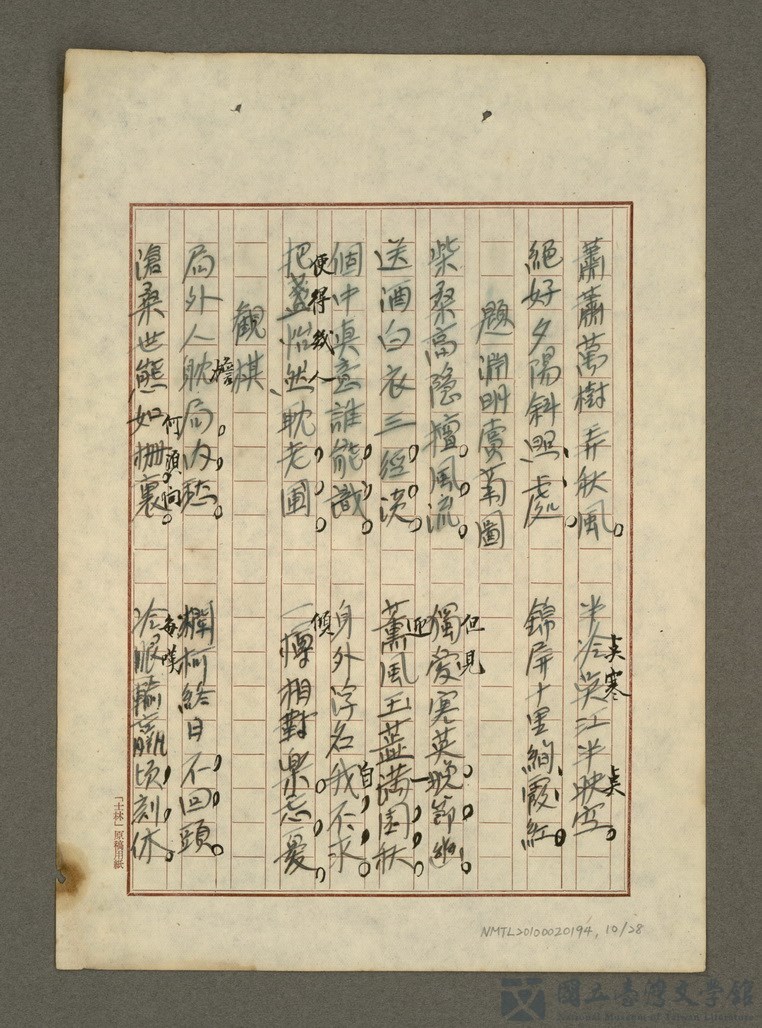 蕭蕭萬樹弄秋風。 半冷吳江半映空。
吳寒
吳
絕好夕陽斜照處。 錦屏十里絢霞紅。
題淵明賣菊圖
柴桑高隱擅風流。 獨愛寒英晚節幽。
但見
送酒白衣三徑淡。 薰風玉蕋滿園秋。
迎
一
個中真意誰能識。 身外浮名我不求。
自
便得幾人
把盞怡然耽老圃。 一樽相對樂忘憂。
傾
觀棋
局外人耽局內愁。 爛柯終日不回頭。
擔
滄桑世態如枰裏。 冷眼輸贏頃刻休。
何須向
每嘆
「士林」原稿用紙
NMTL20100020194, 10/28
國立臺灣文學館
National Museum of Taiwan Literature